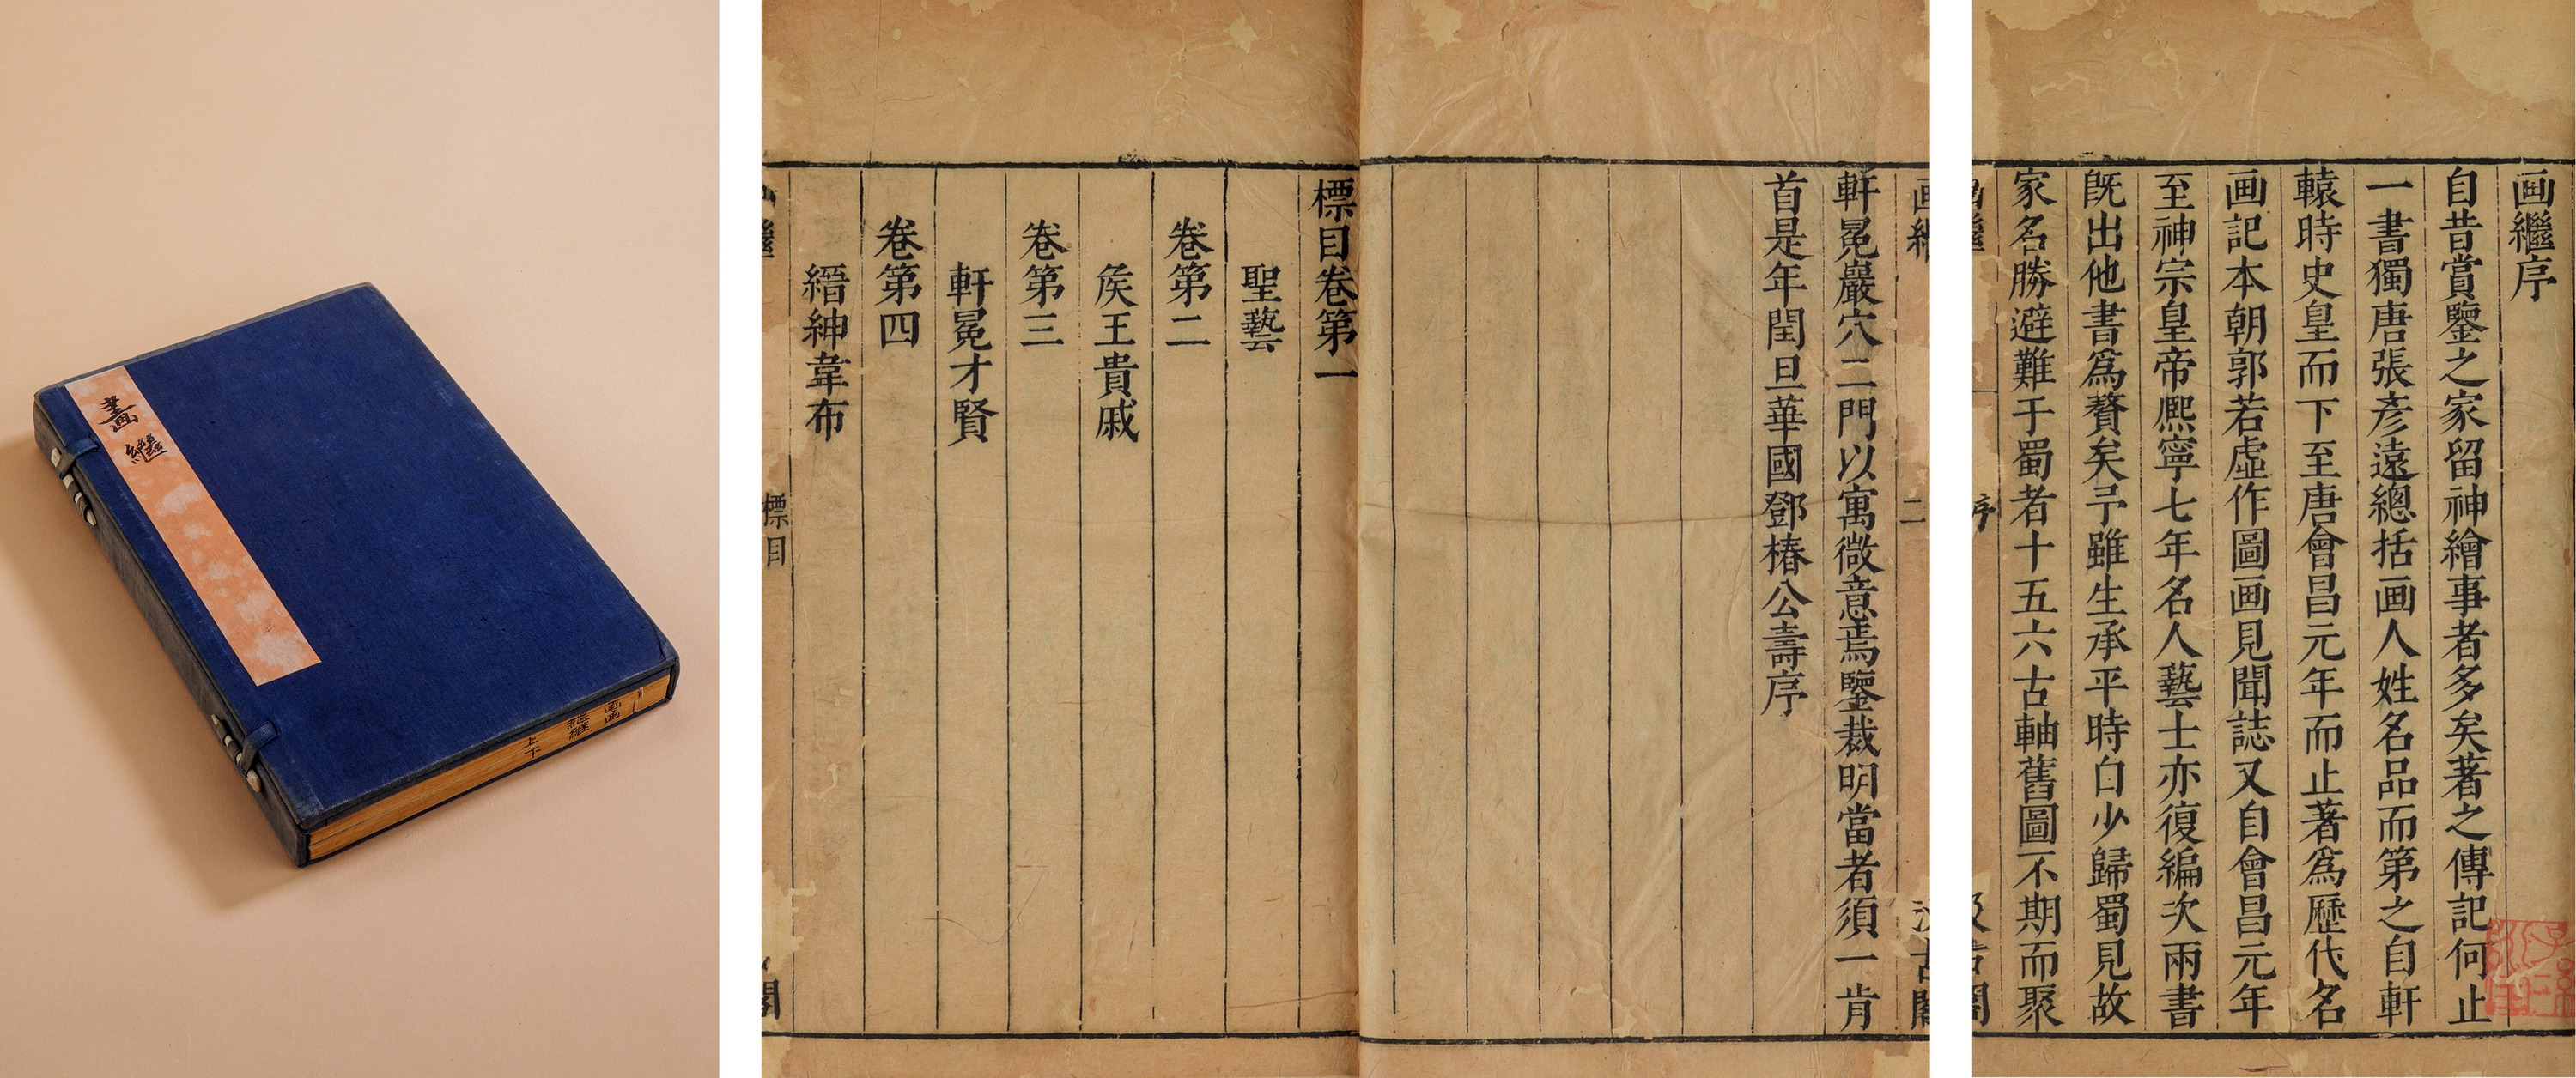 畫繼
畫繼
上下
標目卷第一
聖藝
卷第二
侯王貴戚
卷第三
軒冕才賢
卷第四
縉紳韋布
標目
二
軒冕巖穴二門以寓微意焉鑒裁明當者須一肯
首是年閏旦華國鄧椿公壽序
画繼序
自昔賞鑒之家留神繪事者多矣著之傳記何止
一書獨唐張彥遠總括画人姓名品而第之自軒
轅時史皇而下至唐會昌元年而止著爲歷代名
画記本朝郭若虛作圖画見聞誌又自會昌元年
至神宗皇帝熈寧七年名人藝士亦復編次兩書
旣出他書爲贅矣予雖生承平時自少歸蜀見故
家名勝避難于蜀者十五六古軸舊圖不期而聚
序